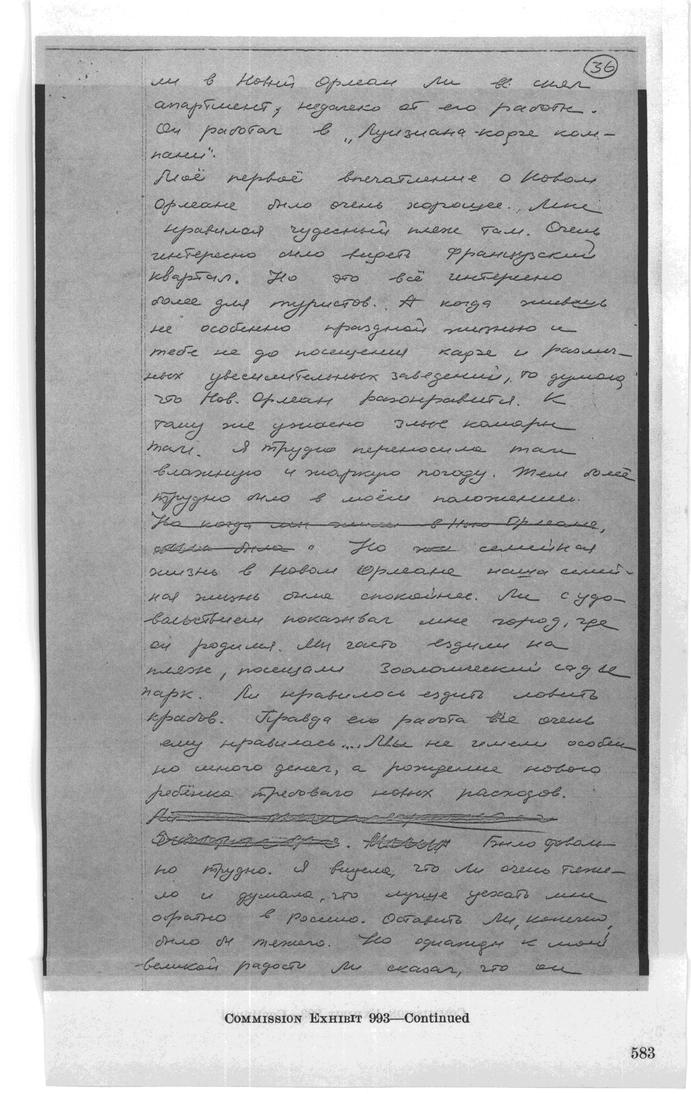 36
ли в Новый Орлеан Ли снял
апартмент, недалеко от его работы.
Он работал в „Луизиана кофе ком-
пани".
Моё первоё впечатление о Новом
Орлеане было очень хорошее. Мне
нравился чудесный пляж там. Очень
интересно было видеть Французский
квартал. Но это всё интересно
более для туристов. А когда живешь
не особенно праздной жизнью и
тебе не до посещения кафе и различ-
ных увеселительных заведений, то думаю,
что Нов. Орлеан разонравится. К
тому же ужасно злые комары
там. Я трудно переносила там
влажную и жаркую погоду. Тем более
трудно было в моём положении.
Но когда мы жили в Нью Орлеане,
была. Но семейная
жизнь в Новом Орлеане наша семей-
ная жизнь была спокойнее. Ли с удо-
вольствием показывал мне город, где
он родился. Мы часто ездили на
пляж, посещали Зоологический сад и
парк. Ли нравилось ездить ловить
крабов. Правда его работа не очень
ему нравилась... Мы не имели особен
но много денег, а рождение нового
ребёнка требовало новых расходов.
Было доволь-
но трудно. Я видела, что Ли очень тяже-
ло и думала, что лучше уехать мне
обратно в Россию. Оставить Ли, конечно,
было бы тяжело. Но однажды к моей
великой радости Ли сказал, что он
COMMISSION EXHIBIT 993—Continued
583